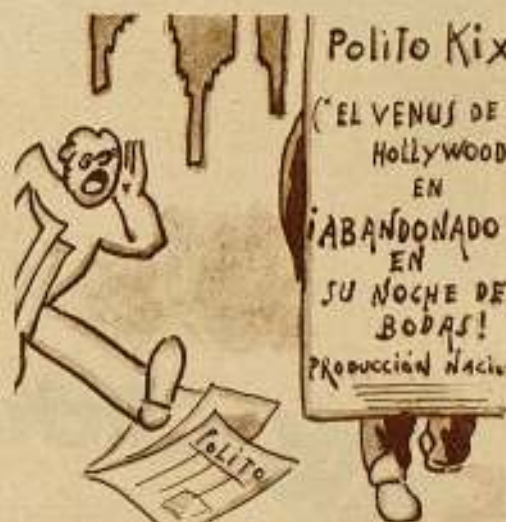 Polito Kix
("EL VENUS DE
HOLLYWOOD
EN
¡ABANDONADO
EN
SU NOCHE DE
BODAS!
PRODUCCIÓN NACIO
POLITO